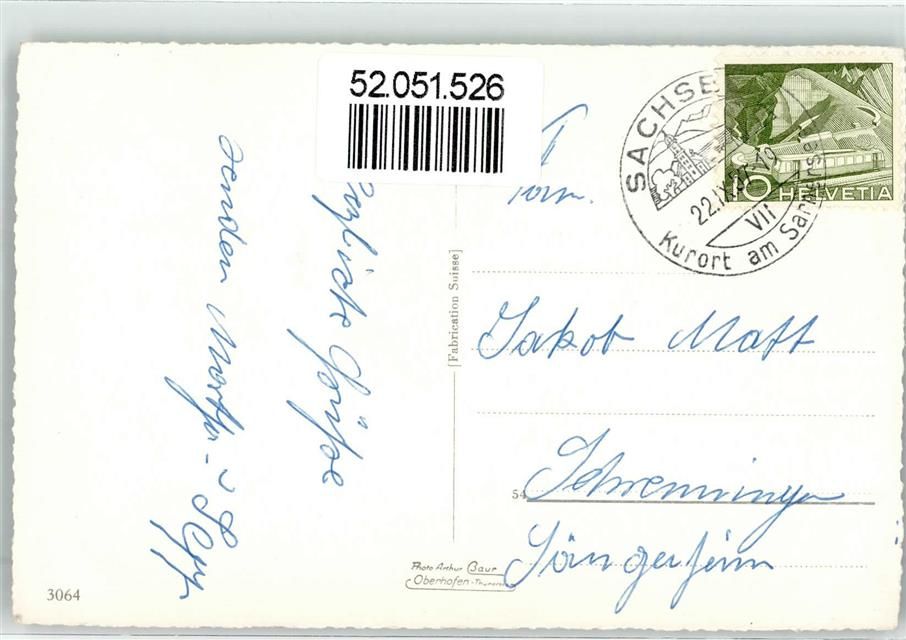 52.051.526
SACHSE
22.IX.57-19
VII
Kurort am Sarnersee
10 HELVETIA
Fam.
Jakob Matt
54
Sängerheim
Herzliche Grüsse
senden
[Fabrication Suisse]
Photo Arthur Baur
Oberhofen-Thunersee
3064